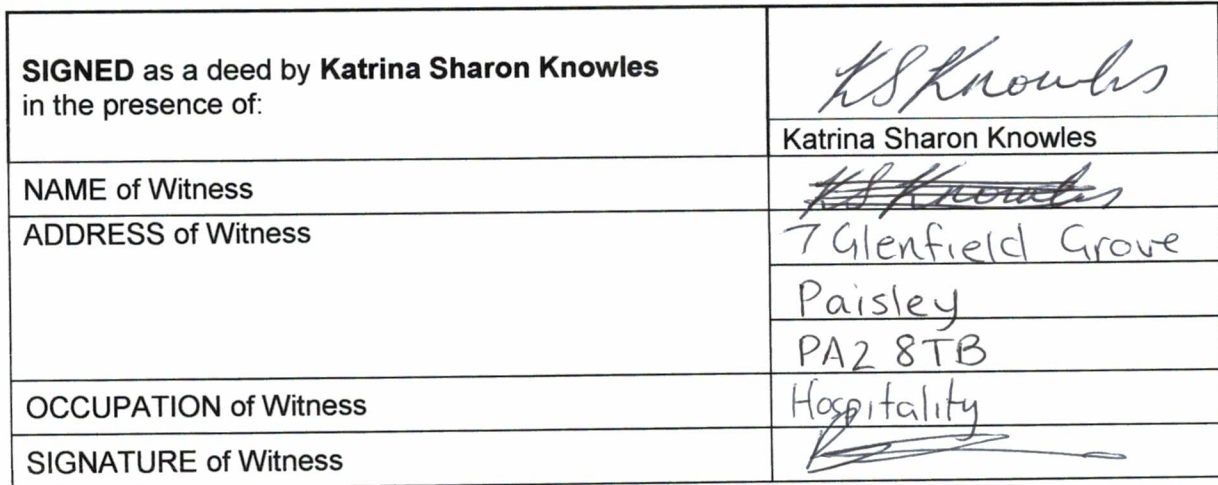 SIGNED as a deed by Katrina Sharon Knowles
in the presence of:
KS Knowles
Katrina Sharon Knowles
NAME of Witness
KS Knowles
ADDRESS of Witness
7 Glenfield Grove
Paisley
PA2 8TB
OCCUPATION of Witness
Hospitality
SIGNATURE of Witness